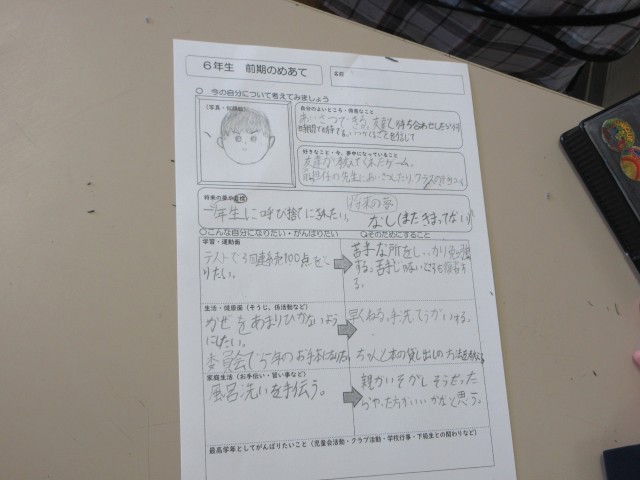 6年生 前期のめあて
名前
○ 今の自分について考えてみましょう
(写真・似顔絵)
自分のよいところ・得意なこと
あいさつできる。友達と待ち合わせしたら
時間でも待てる。
好きなこと・今、夢中になっていること
友達が教えてくれたゲーム。
担任の先生にあいさつしたり、
将来の夢や目標
一年生に呼び捨てにされたい。
将来の夢
なし(まだきまってない)
○こんな自分になりたい・がんばりたい
○そのためにすること
学習・運動面
テストで3回連続100点をと
りたい。
苦手な所をしっかり勉強
する。苦手じゃないところも
る。
生活・健康面(そうじ、係活動など)
かぜをあまりひかないよう
にしたい。
委員会で5年のお手本になりたい
早くねる。手洗てうがいする。
ちゃんと本の貸し出しの方法を
家庭生活(お手伝い・習い事など)
風呂洗いを手伝う。
親がいそがしそうだった
らやった方がいいかなと思う。
最高学年としてがんばりたいこと(児童会活動・クラブ活動・学校行事・下級生との関わりなど)